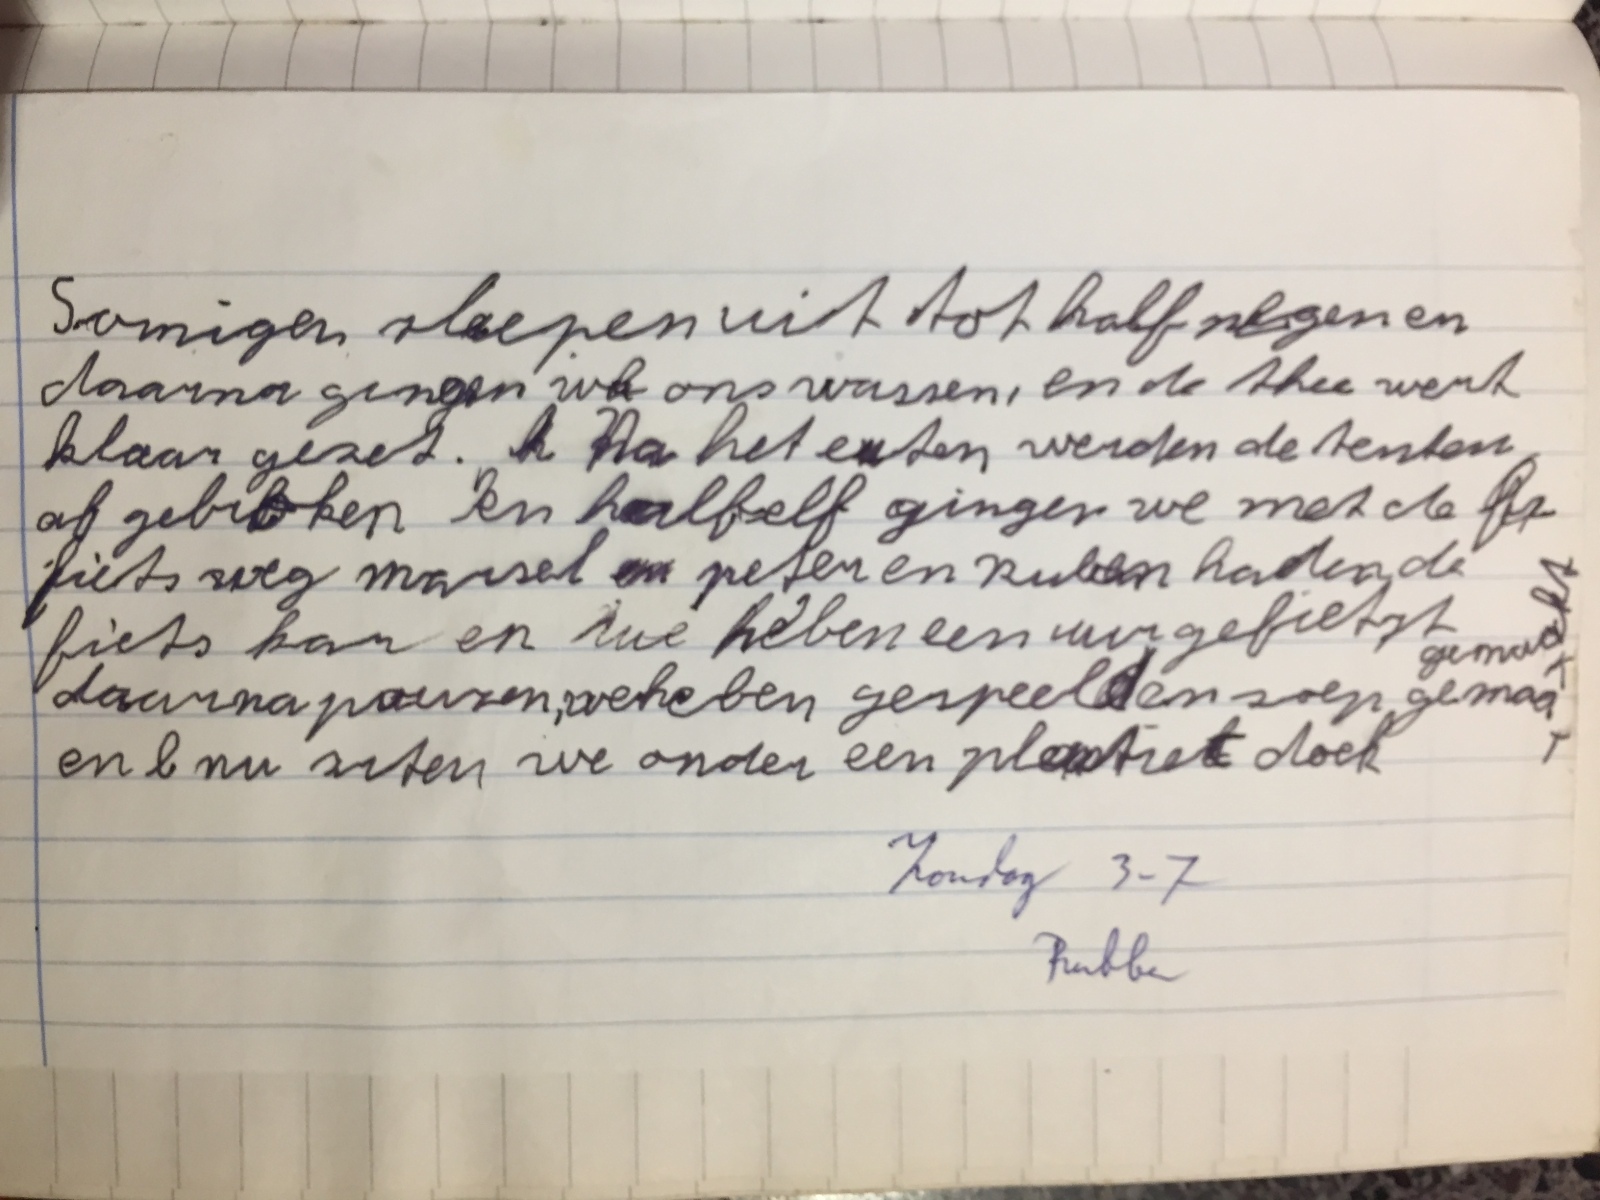 Somigen slaepen uit tot half negen en
daarna gingen we ons wassen, en de thee wert
klaar gezet. Na het eten werden de tenten
af gebroken En half elf gingen we met de
fiets weg marsel en peter en ruben haden de
fiets kar en we heben een uur gefietst
daarna pauzen, we heben gespeeld en soep gemaakt
en nu ziten we onder een plastiek doek
Zondag 3-7